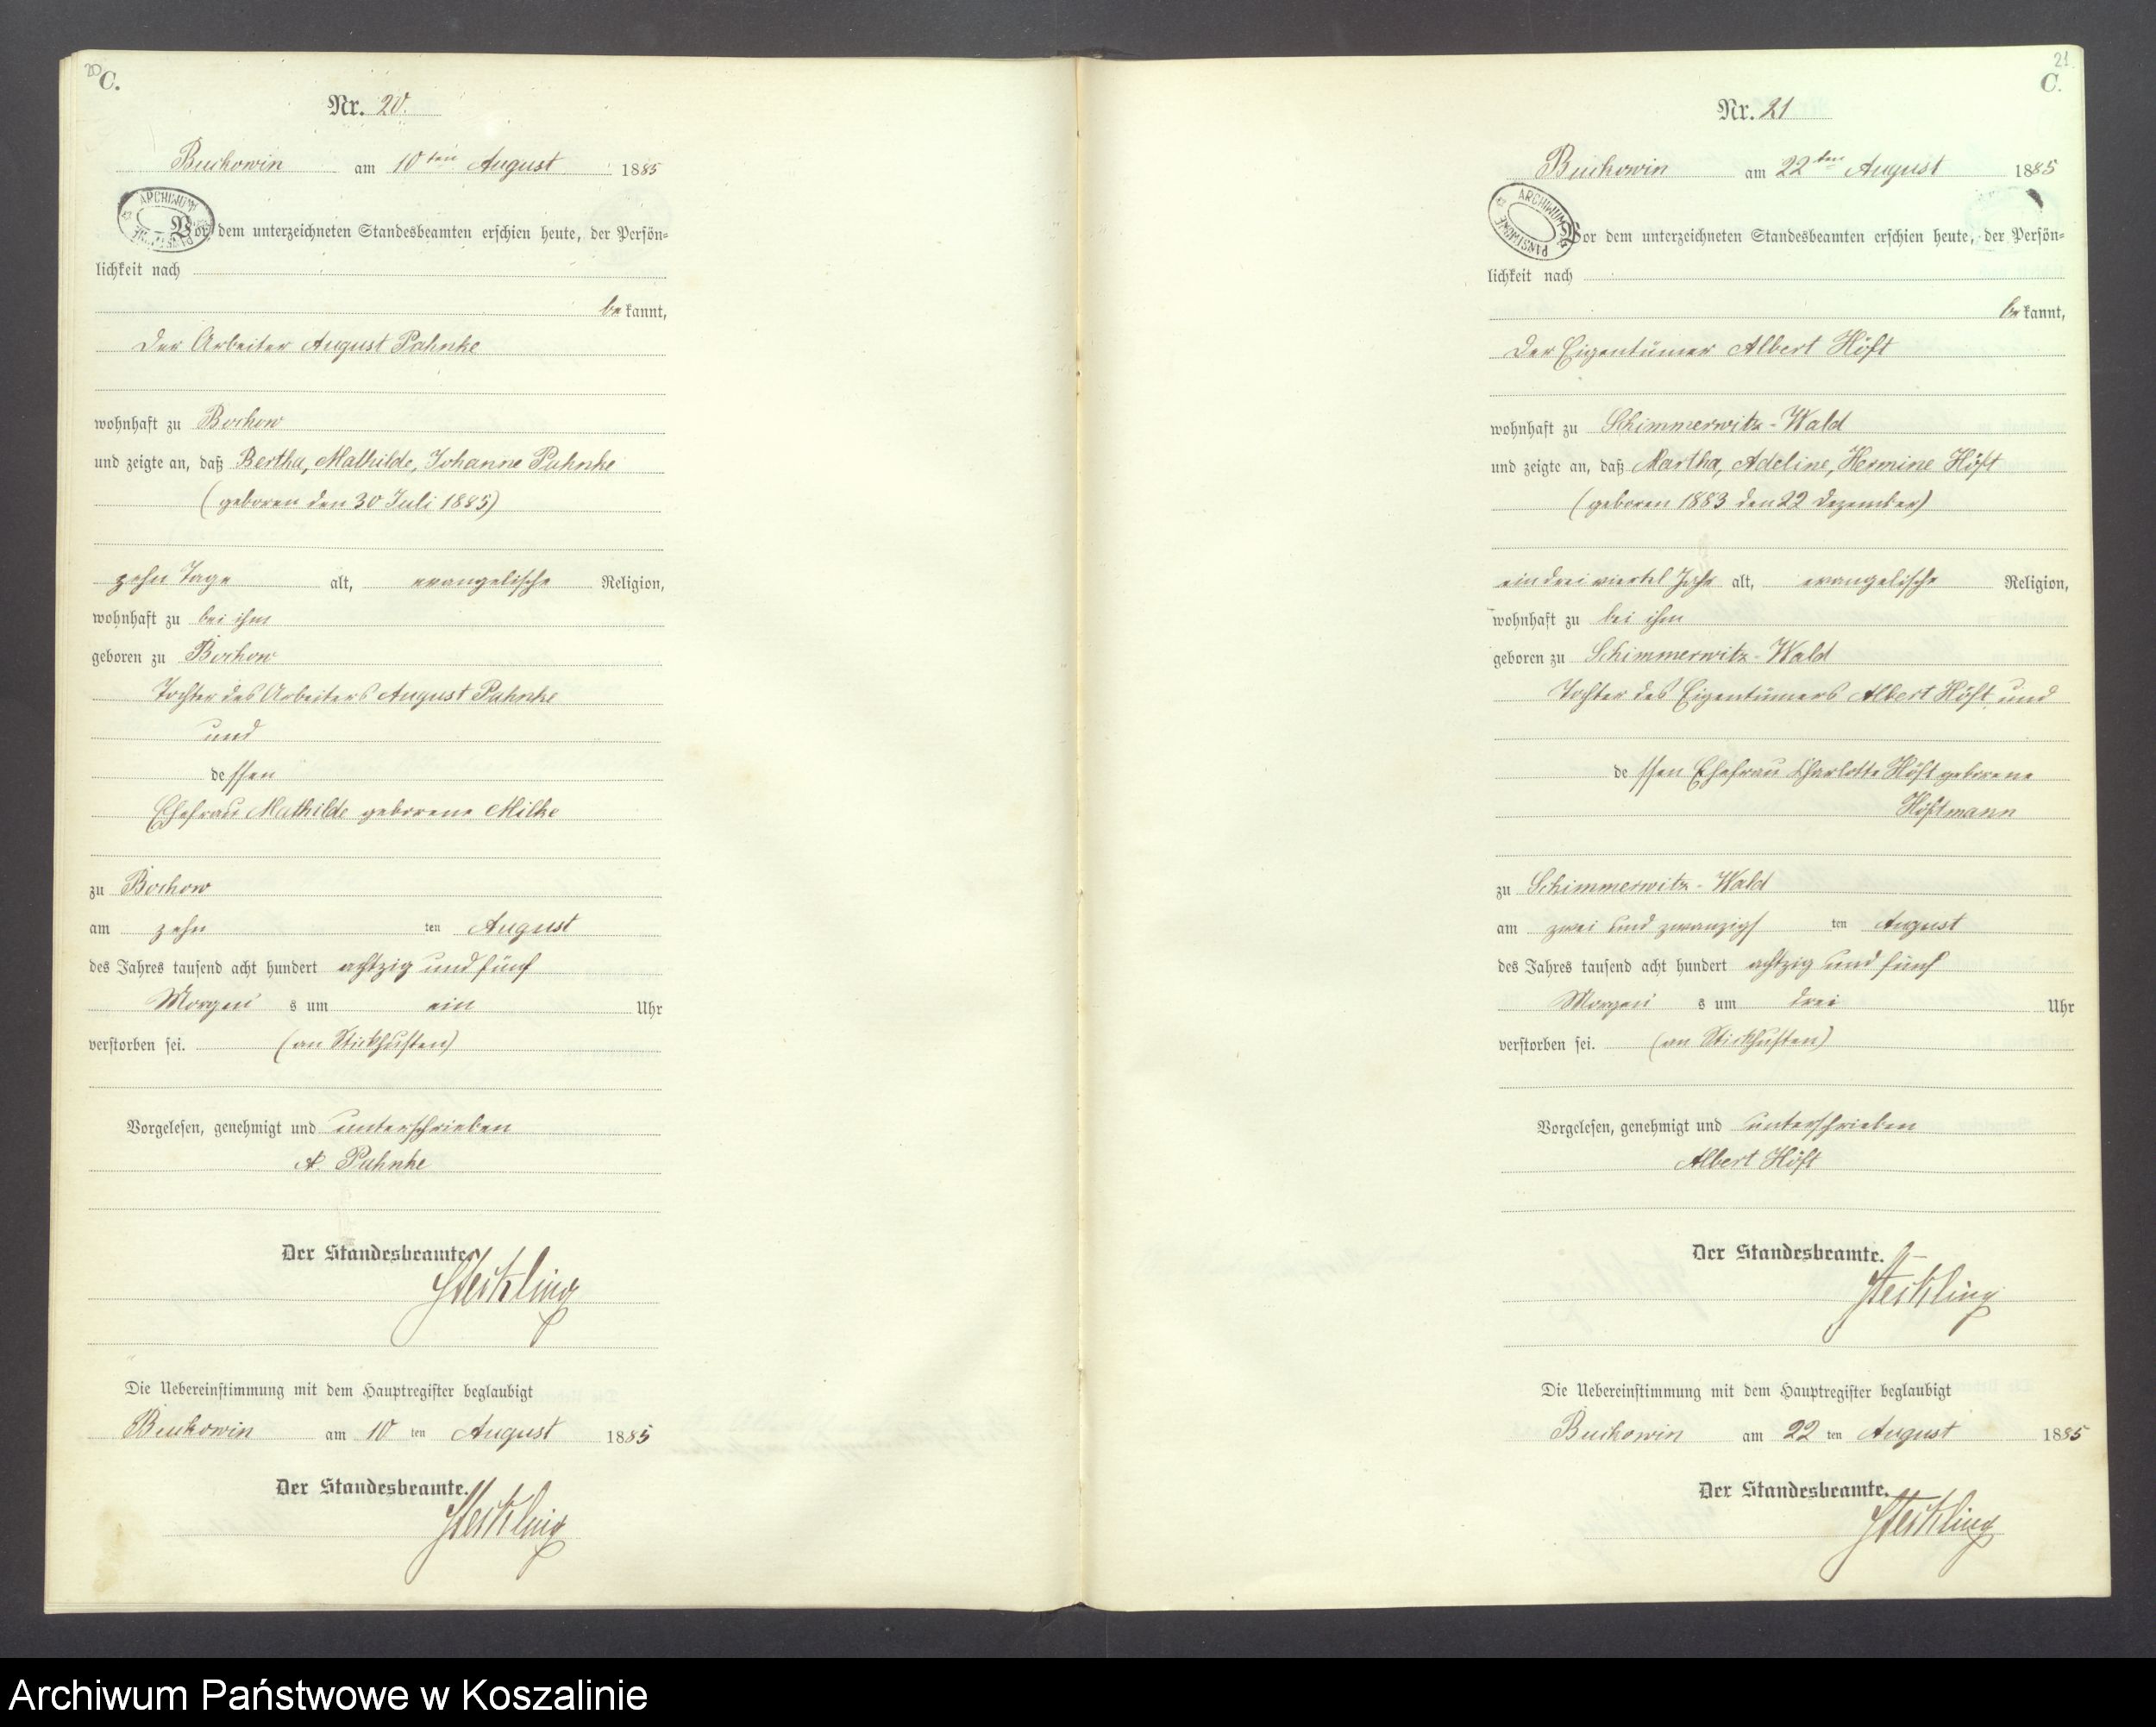 20
C.
Nr. 20.
Buckowin am 10ten August 1885
ARCHIWUM PAŃSTWOWE
Vor dem unterzeichneten Standesbeamten erschien heute, der Persön=
lichkeit nach
bekannt,
der Arbeiter August Pahnke
wohnhaft zu Bochow
und zeigte an, daß Bertha, Mathilde, Johanne Pahnke
(geboren den 30 Juli 1885)
zehn Tage alt, evangelische Religion,
wohnhaft zu bei ihm
geboren zu Bochow
Tochter des Arbeiters August Pahnke
und
dessen
Ehefrau Mathilde geborene Milke
zu Bochow
am zehn ten August
des Jahres tausend acht hundert achtzig und fünf
Morgens um ein Uhr
verstorben sei. (an Stickhusten)
Vorgelesen, genehmigt und unterschrieben
A. Pahnke
Der Standesbeamte.
Steckling
Die Uebereinstimmung mit dem Hauptregister beglaubigt
Buckowin am 10 ten August 1885
Der Standesbeamte.
Steckling
21.
C.
Nr. 21
Buckowin am 22ten August 1885
ARCHIWUM PAŃSTWOWE
Vor dem unterzeichneten Standesbeamten erschien heute, der Persön=
lichkeit nach
bekannt,
der Eigentümer Albert Höft
wohnhaft zu Schimmerwitz-Wald
und zeigte an, daß Martha, Adeline, Hermine Höft
(geboren 1883 den 22 Dezember)
ein drei viertel Jahr alt, evangelische Religion,
wohnhaft zu bei ihm
geboren zu Schimmerwitz-Wald
Tochter des Eigentümers Albert Höft und
dessen Ehefrau Charlotte Höft geborene
Höftmann
zu Schimmerwitz-Wald
am zwei und zwanzigs ten August
des Jahres tausend acht hundert achtzig und fünf
Morgens um drei Uhr
verstorben sei. (an Stickhusten)
Vorgelesen, genehmigt und unterschrieben
Albert Höft
Der Standesbeamte.
Steckling
Die Uebereinstimmung mit dem Hauptregister beglaubigt
Buckowin am 22 ten August 1885
Der Standesbeamte.
Steckling
Archiwum Państwowe w Koszalinie